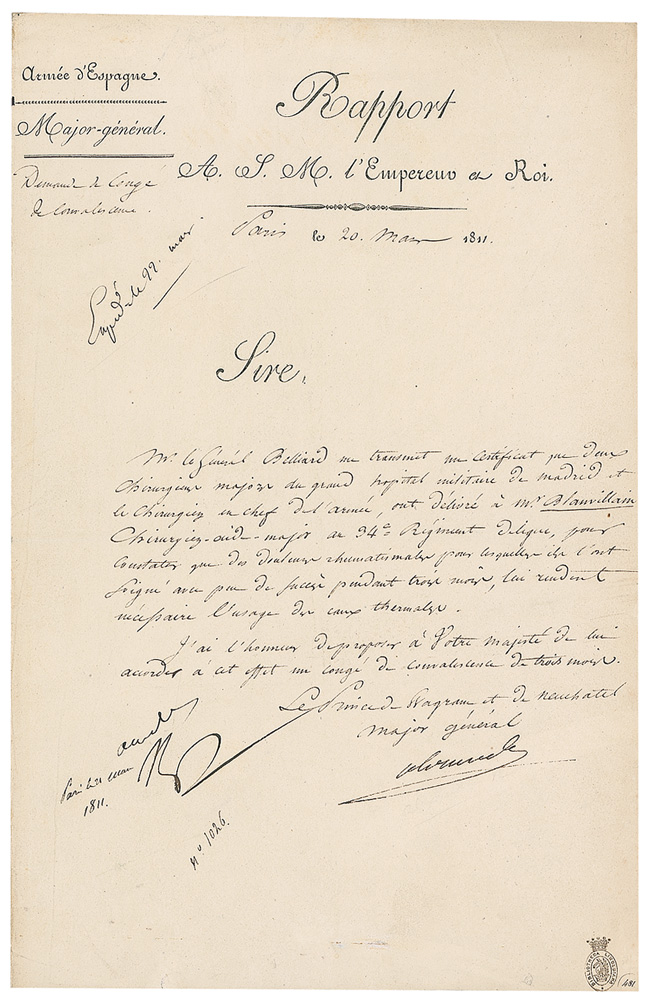 Armée d'Espagne.
Major-général.
Demande de Congé
de Convalescence.
Rapport
A. S. M. l'Empereur et Roi.
Paris le 20. Mars 1811.
Expédié le 22. mars
Sire,
Mr. le Général Belliard me transmet un certificat que deux
Chirurgiens majors du grand hôpital militaire de madrid et
le Chirurgien en chef de l'armée, ont délivré à Mr. Blanvillain
Chirurgien-aide-major au 34e Régiment de ligne, pour
Constater que des douleurs rheumatismales pour lesquelles ils l'ont
soigné avec peu de succès pendant trois mois, lui rendent
nécessaire l'usage des eaux thermales.
J'ai l'honneur de proposer à Votre Majesté de lui
accorder à cet effet un congé de convalescence de trois mois.
Le Prince de Wagram et de neuchatel
major général
alexandre
accordé
Paris le 21 mars
1811.
No 1026.
481